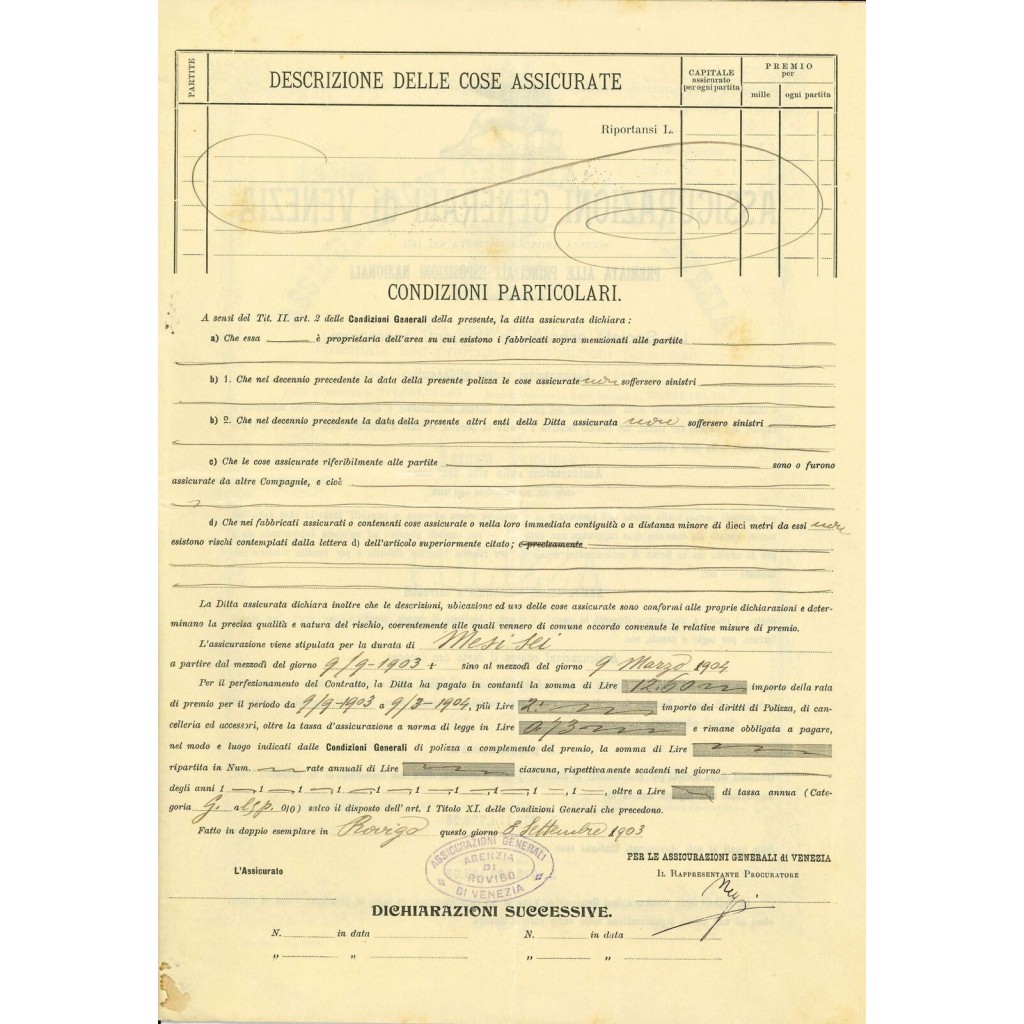 PARTITE
DESCRIZIONE DELLE COSE ASSICURATE
CAPITALE
assicurato
per ogni partita
PREMIO
per
mille
ogni partita
Riportansi L.
CONDIZIONI PARTICOLARI.
A sensi del Tit. II. art. 2 delle Condizioni Generali della presente, la ditta assicurata dichiara :
a) Che essa è proprietaria dell'area su cui esistono i fabbricati sopra menzionati alle partite
b) 1. Che nel decennio precedente la data della presente polizza le cose assicurate non soffersero sinistri
b) 2. Che nel decennio precedente la data della presente altri enti della Ditta assicurata non soffersero sinistri
c) Che le cose assicurate riferibilmente alle partite sono o furono
assicurate da altre Compagnie, e cioè
d) Che nei fabbricati assicurati o contenenti cose assicurate o nella loro immediata contiguità o a distanza minore di dieci metri da essi non
esistono rischi contemplati dalla lettera d) dell'articolo superiormente citato; e precisamente
La Ditta assicurata dichiara inoltre che le descrizioni, ubicazione ed uso delle cose assicurate sono conformi alle proprie dichiarazioni e deter-
minano la precisa qualità e natura del rischio, coerentemente alle quali vennero di comune accordo convenute le relative misure di premio.
L'assicurazione viene stipulata per la durata di Mesi sei
a partire dal mezzodì del giorno 9/9-1903 sino al mezzodì del giorno 9 Marzo 1904
Per il perfezionamento del Contratto, la Ditta ha pagato in contanti la somma di Lire 12.60 importo della rata
di premio per il periodo da 9/9-1903 a 9/3-1904, più Lire 2: importo dei diritti di Polizza, di can-
celleria ed accessori, oltre la tassa d'assicurazione a norma di legge in Lire 0.73 e rimane obbligata a pagare,
nel modo e luogo indicati dalle Condizioni Generali di polizza a complemento del premio, la somma di Lire
ripartita in Num. rate annuali di Lire ciascuna, rispettivamente scadenti nel giorno
degli anni 1 , 1 , 1 , 1 , 1 , 1 , 1 , 1 , oltre a Lire di tassa annua (Cate-
goria G. al 0|0) salvo il disposto dell'art. 1 Titolo XI. delle Condizioni Generali che precedono.
Fatto in doppio esemplare in Rovigo questo giorno 8 Settembre 1903
ASSICURAZIONI GENERALI
AGENZIA
DI
ROVIGO
DI VENEZIA
PER LE ASSICURAZIONI GENERALI di VENEZIA
L'Assicurato
IL RAPPRESENTANTE PROCURATORE
DICHIARAZIONI SUCCESSIVE.
N. in data N. in data
„ „ „ „